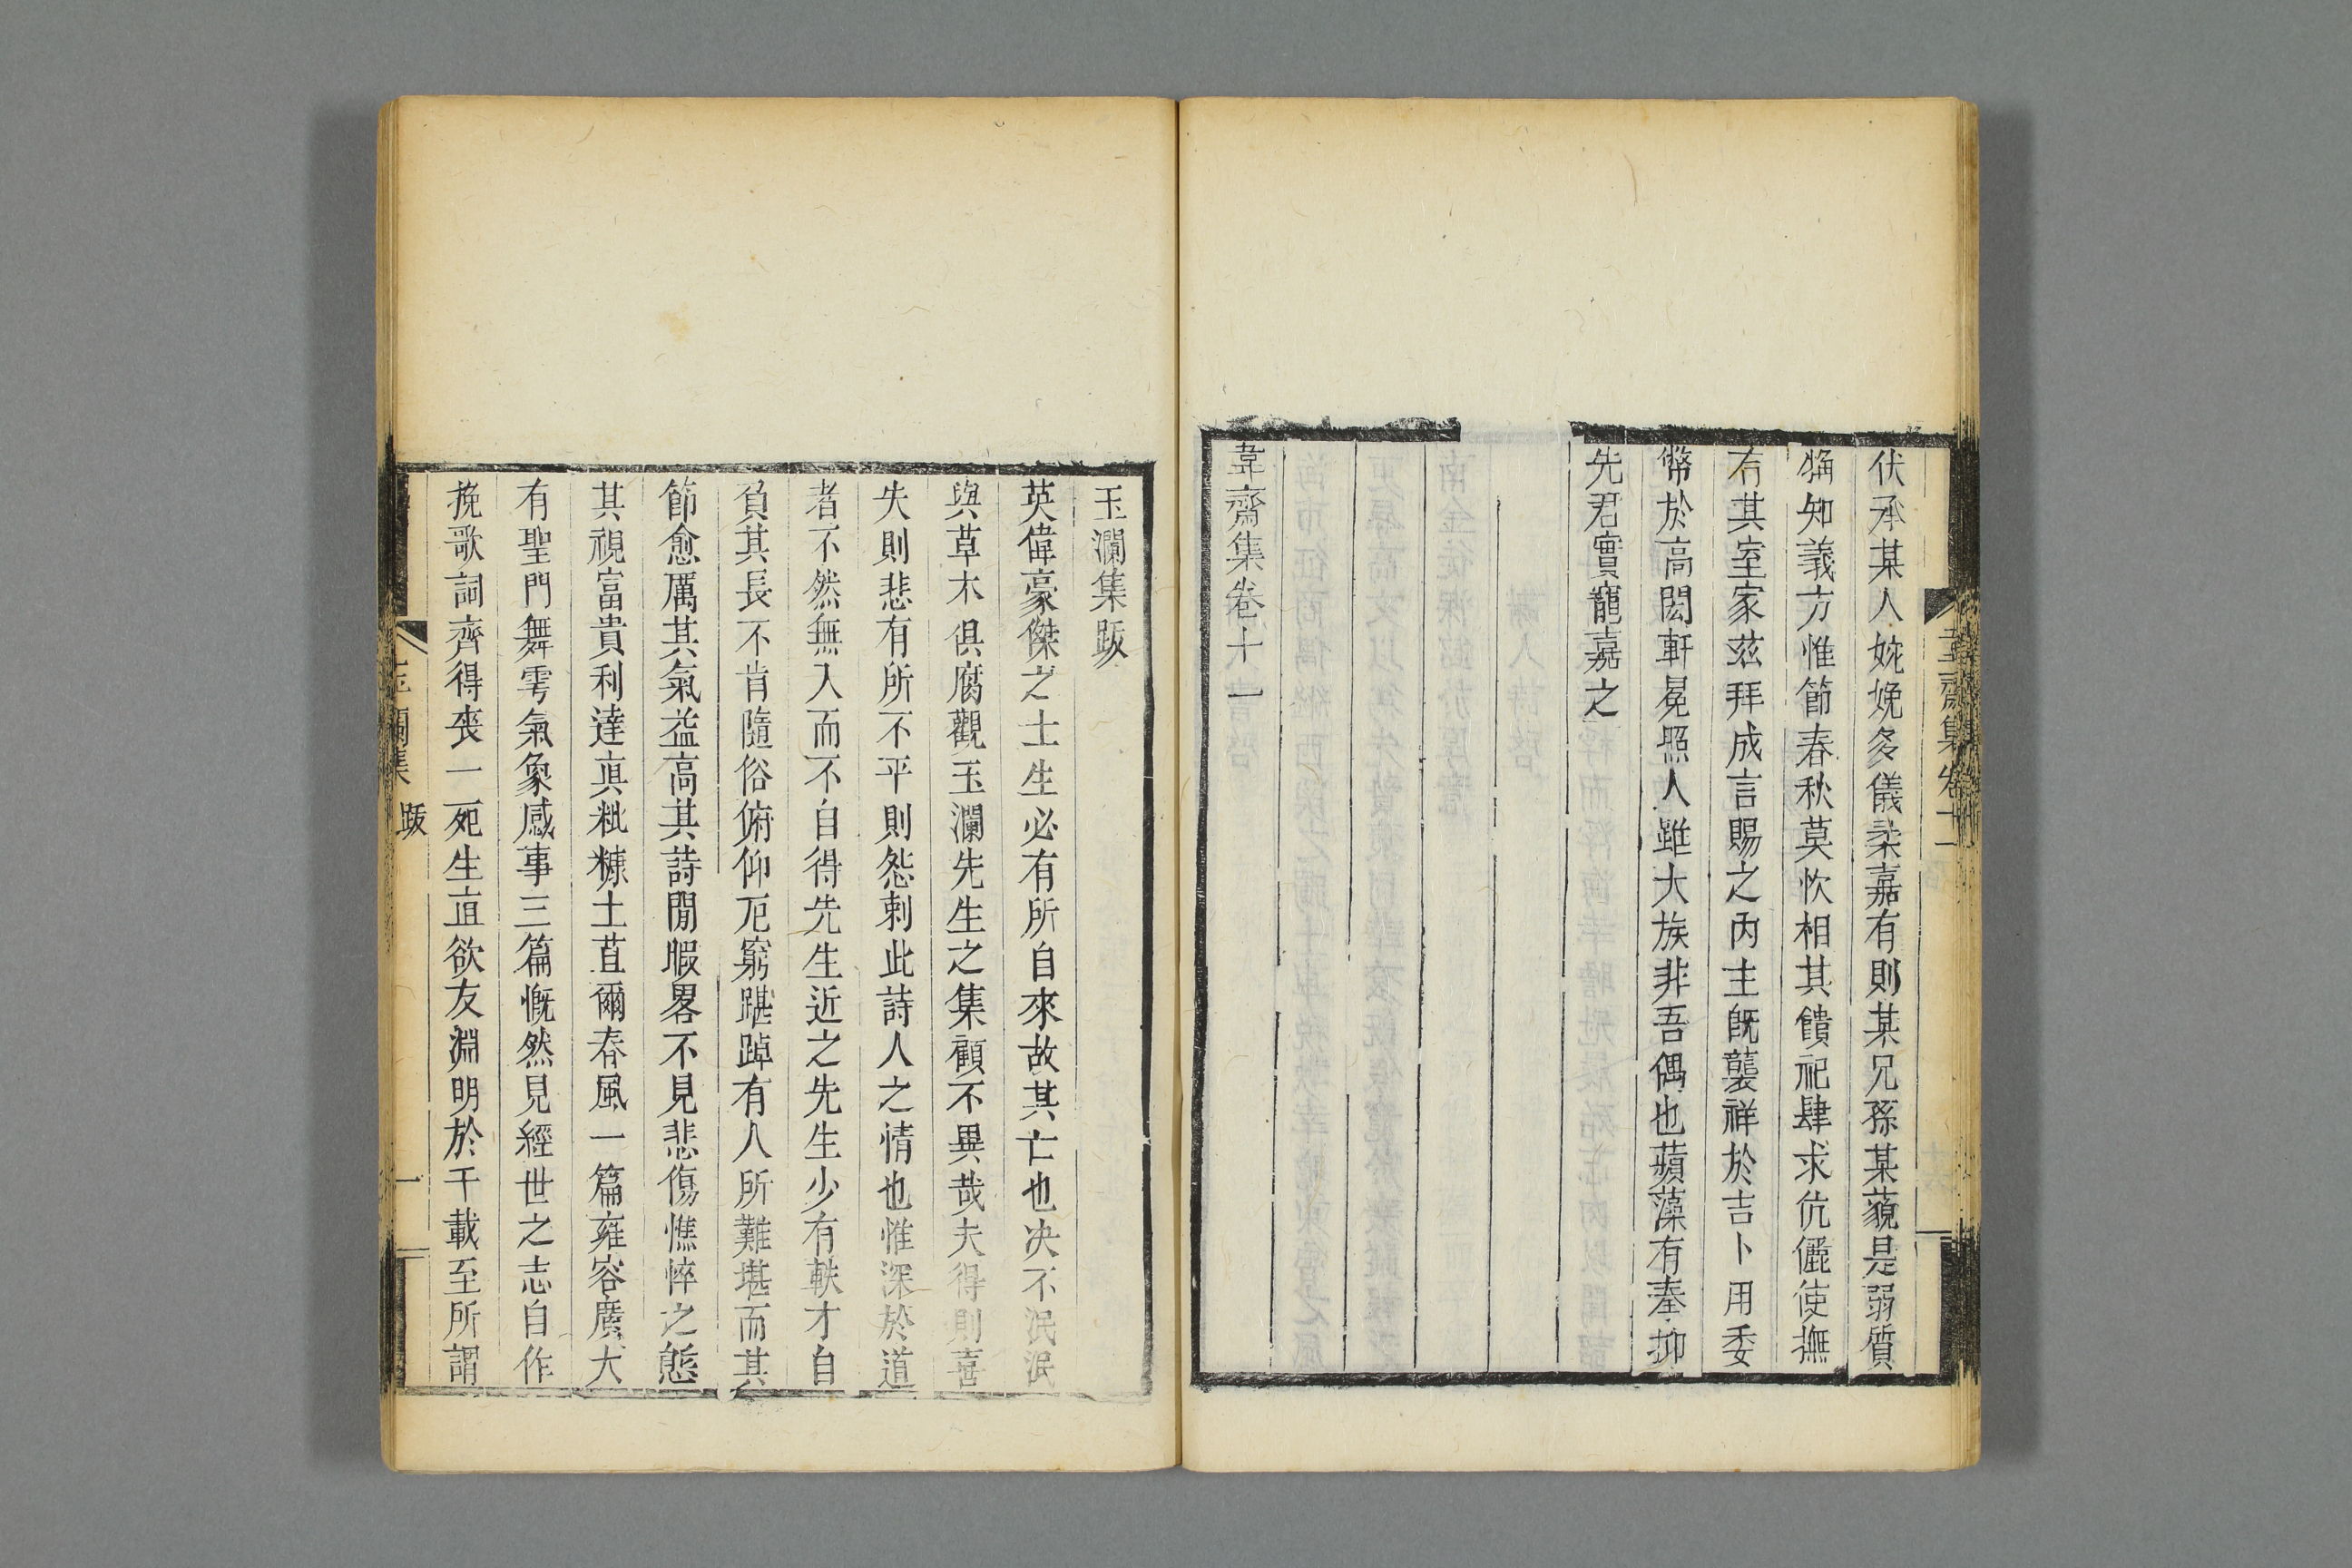 伏承某人婉娩多儀柔嘉有則某兄孫某藐是弱質
猶知義方惟節春秋莫忺相其饋祀肆求伉儷使撫
有其室家茲拜成言賜之內主旣襲祥於吉卜用委
幣於高閎軒冕照人雖大族非吾偶也蘋藻有奉抑
先君實寵嘉之
韋齋集卷十一
韋齋集卷十一
玉瀾集跋
英偉豪傑之士生必有所自來故其亡也决不泯泯
與草木俱腐觀玉瀾先生之集顧不異哉夫得則喜
失則悲有所不平則怨刺此詩人之情也惟深於道
者不然無入而不自得先生近之先生少有軼才自
負其長不肯隨俗俯仰厄窮踸踔有人所難堪而其
節愈厲其氣益高其詩閒暇畧不見悲傷憔悴之態
其視富貴利達眞粃糠土苴爾春風一篇雍容廣大
有聖門舞雩氣象感事三篇慨然見經世之志自作
挽歌詞齊得喪一死生直欲友淵明於千載至所謂
玉瀾集 跋 一